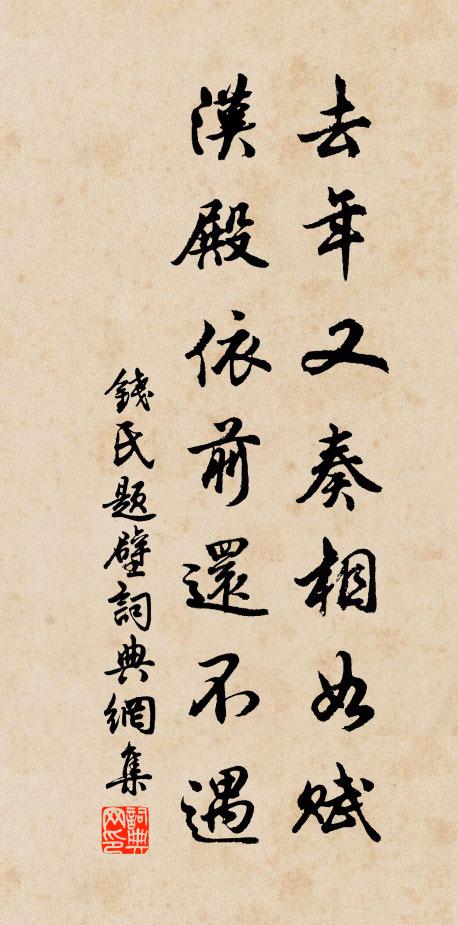 去年又奏相如賦
漢殿依前還不遇
錢氏題壁詞典網集
詞典
网印